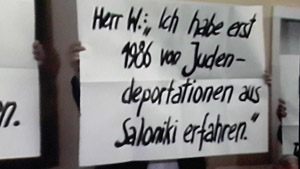 Herr W.: „Ich habe erst
1986 von Juden-
deportationen aus
Saloniki erfahren."
n.